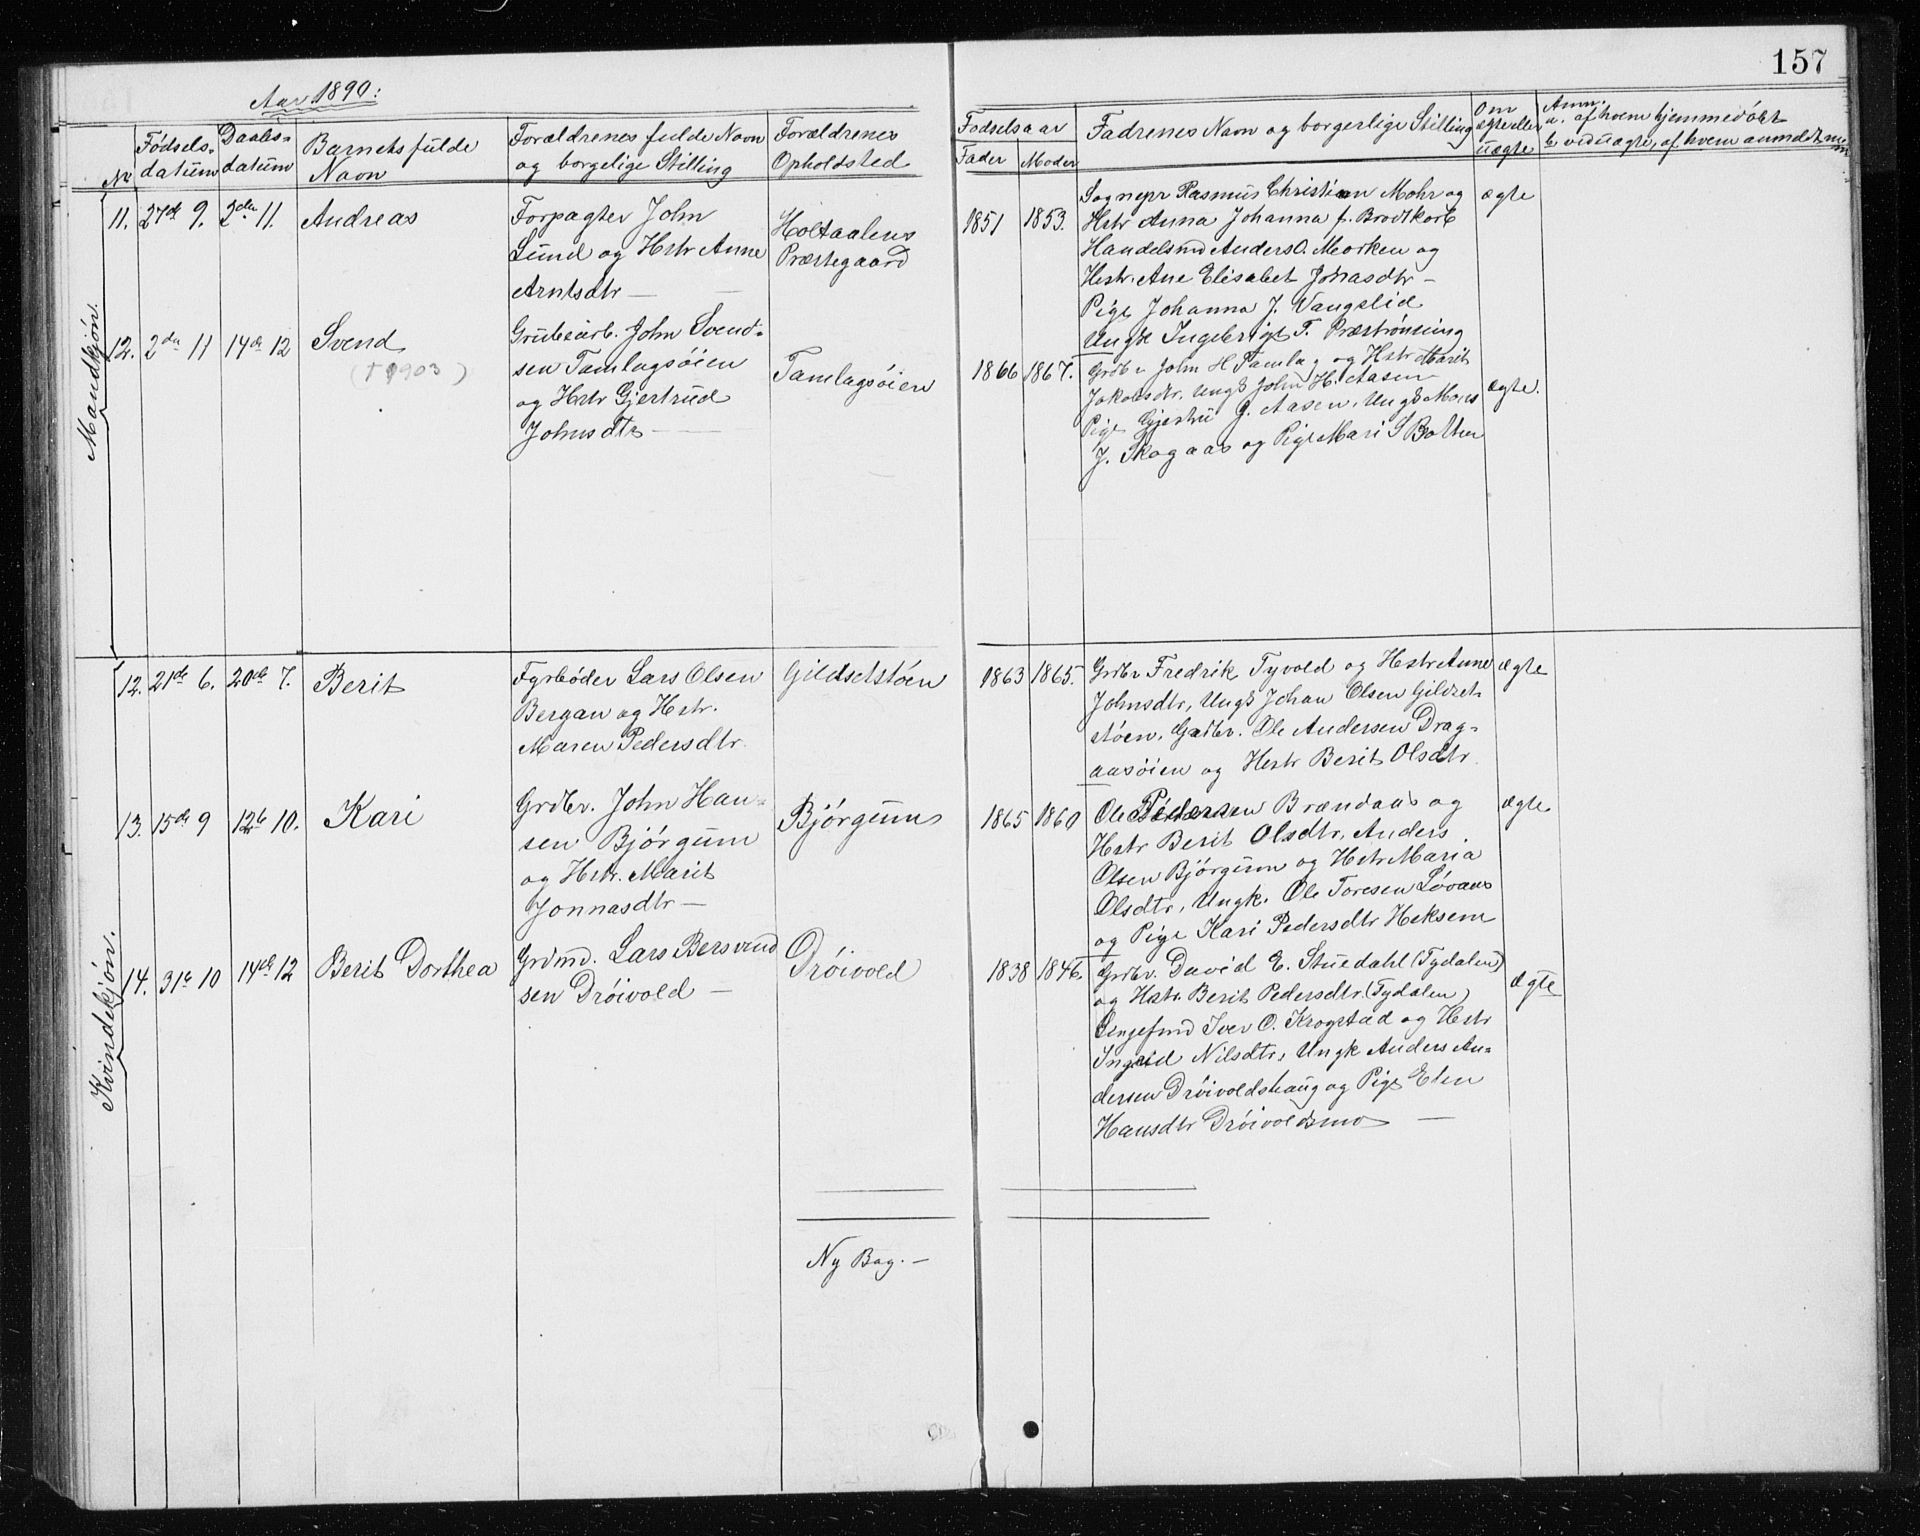 157
Aar 1890:
Nr. Fødsels-datum Daabs-datum Barnets fulde Navn Forældrenes fulde Navn og borgelige Stilling Forældrenes Opholdsted
Fødselsaar Fader Moder Fadrenes Navn og borgerlige Stilling Om ægte eller uægte Anm. a. af hvem hjemmedøbt b. ved uægte, af hvem anmeldt
Mandkjøn.
11. 27de 9. 2den 11. Andreas
Forpagter John
Lund og Hstr Anne
Arntsdtr —
Holtaalens
Præstegaard
1851 1853.
Sognepr Rasmus Christian Mohr og
Hstr Anna Johanna f. Brodtkorb
Handelsmd Anders O. Morken og
Hstr. Ane Elisabet Jonasdtr —
Pige Johanna J. Vangslid
Ungk Ingebrigt T. Præstrønning
ægte
12. 2den 11 14de 12 Svend
(† 1903)
Grubearb. John Svend-
sen Tamlagsøien
og Hstr Gjertrud
Johnsdtr —
Tamlagsøien
1866 1867.
Grdbr John H Tamlag og Hstr Marit
Jakobsdtr, Ungk John H. Aasen
Pige J. Aasen, Ungk Mons
J. Skogaas og Pige Mari S Bolten
ægte.
Kvindekjøn.
12. 21de 6. 20de 7. Berit
Fyrbøder Lars Olsen
Bergan og Hstr.
Maren Pedersdtr.
Gildsetstøen
1863 1865.
Grdbr Fredrik Tyvold og Hstr Anne
Johnsdtr, Ungk Johan Olsen Gildset-
støen. Gardbr. Ole Andersen Drag-
aasøien og Hstr Berit Olsdtr.
ægte
13. 15de 9 12te 10. Kari
Grdbr. John Han-
sen Bjørgum
og Hstr. Marit
Jonnasdtr —
Bjørgum
1865 1860
Ole Pedersen Brændaas og
Hstr Berit Olsdtr, Anders
Olsen Bjørgum og Hstr Maria
Olsdtr, Ungk. Ole Toresen Løvaas
og Pige Kari Pedersdtr Heksem
ægte
14. 31te 10 14de 12 Berit Dorthea
Grdmd. Lars Bersvend
sen Drøivold —
Drøivold
1838 1846.
Grdbr. David E. Stuedahl (Tydalen)
og Hstr. Berit Pedersdtr. (Tydalen)
Iver O. Krogstad og Hstr
Ingrid Nilsdtr, Ungk Anders An-
dersen Drøivoldshaug og Pige Elen
Hansdtr Drøivoldsmo —
ægte
Ny Bog. —